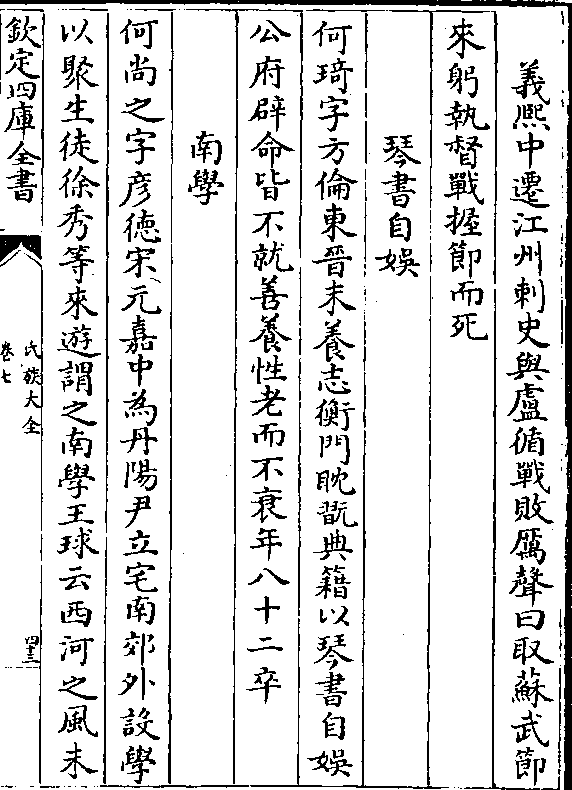 義熙中遷江州刺史與盧循戰敗厲聲曰取蘇武節
來躬執督戰握節而死
琴書自娛
何琦字方倫東晉末養志衡門眈翫典籍以琴書自娛
公府辟命皆不就善養性老而不衰年八十二卒
南學
何尚之字彥德宋元嘉中為丹陽尹立宅南郊外設學
以聚生徒徐秀等來遊謂之南學王球云西河之風未
欽定四庫全書
氏族大全
卷七
四十三